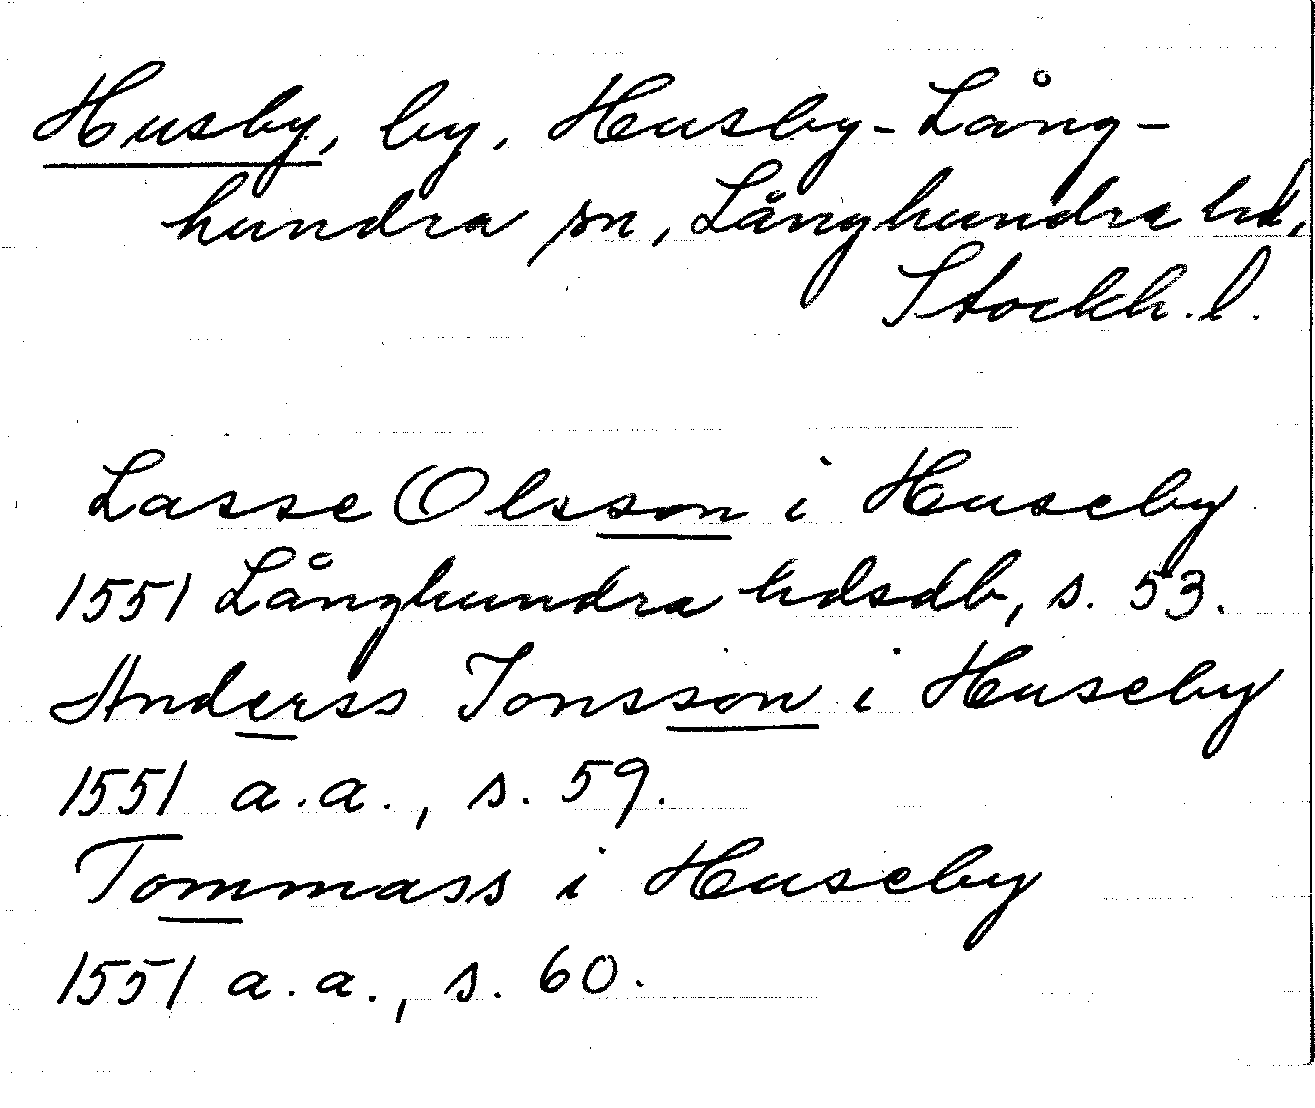 Husby, by, Husby-Lång-
hundra sn, Långhundra hd,
Stockh. l.
Lasse Olsson i Huseby
1551 Långhundra hdsdb, s. 53.
Anderss Jonsson i Huseby
1551 a.a., s. 59.
Tommass i Huseby
1551 a.a., s. 60.